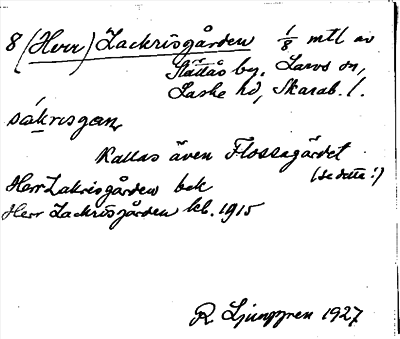 8 (Herr) Zackrisgården 1/8 mtl av
Slättås by. Larvs sn,
Laske hd, Skarab. l.
sákrisgan
Kallas även Flossagärdet
(se detta!)
Herr Zakrisgården bek
Herr Zackrisgården kb. 1915
R Ljunggren 1927